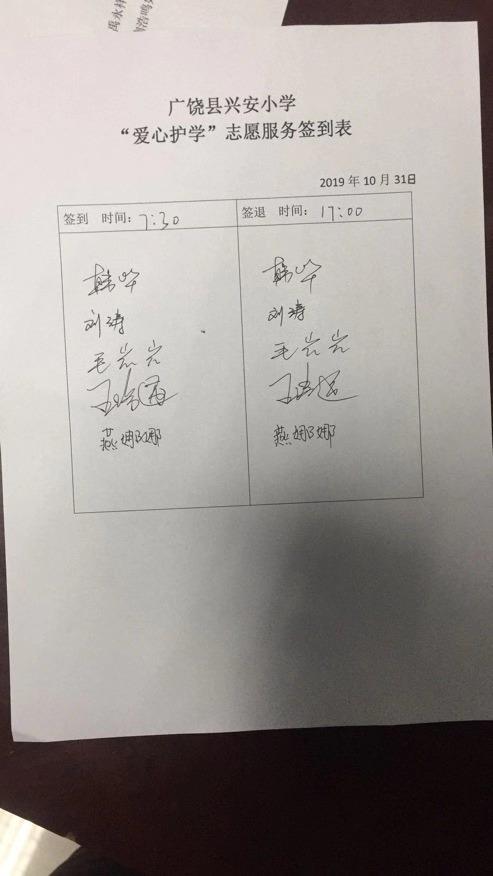 禹永祥
浩鸣
广饶县兴安小学
“爱心护学”志愿服务签到表
2019 年 10 月 31日
签到 时间：7:30
签退 时间：17:00
韩
韩
刘涛
刘涛
毛岩岩
毛岩岩
王
王
燕娜娜
燕娜娜